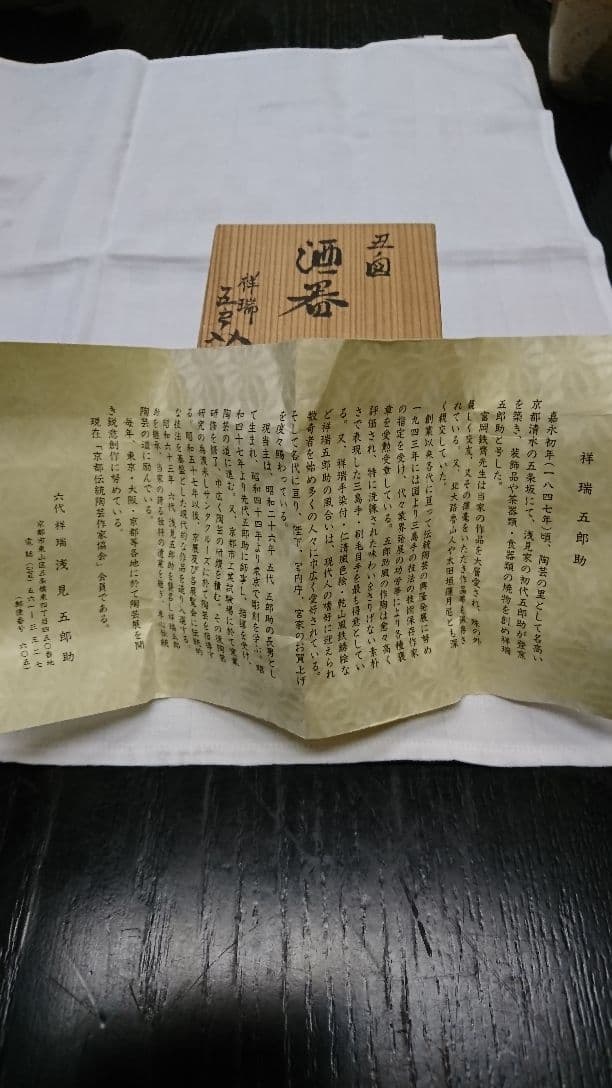 酒器
祥瑞
祥瑞 五郎助
嘉永初年(一八四七年)頃、陶芸の里として名高い
京都清水の五条坂にて、浅見家の初代五郎助が登窯
を築き、装飾品や茶器類・食器類の焼物を創め祥瑞
五郎助と号した。
富岡鉄斎先生は当家の作品を大層愛され、殊の外
親しく交友、又その揮毫をいただき作品等も蔵存さ
れている。又、北大路魯山人や太田垣蓮月尼とも深
く親交していた。
創業以来各代に亘って伝統陶芸の興隆発展に努め
一九四三年には国より三島手の技法の技術保存作家
の指定を受け、代々業界発展の功労等により各種褒
章を受勲受章している。五郎助風の作陶は愈々高く
評価され、特に洗練された味わいをさりげない素朴
さで表現した三島手・刷毛目手を最も得意としてい
る。又、祥瑞手染付・仁清風色絵・乾山風鉄錆絵な
ど祥瑞五郎助の風合いは、現代人の嗜好に迎えられ
数奇者を始め多くの人々に巾広く愛好されている。
そして各代に亘り、陛下、宮内庁、宮家のお買上げ
を度々賜わっている。
現当主は、昭和二十六年 五代 五郎助の長男とし
て生まれ、昭和四十四年より東京で彫刻を学ぶ。昭
和四十七年より先代五郎助に師事し、指導を受け、
陶芸の道に進む。又、京都市工芸試験場に於て窯業
研修を修了、巾広く陶芸の研燈を積む。その後陶芸
研究の為渡米しサンタクルーズに於て陶芸を指導す
る。昭和五十七年以後、京展及び各展覧会に伝統的
な技法を基盤とした現代的な作品を砥り入選する。
昭和六十三年 六代 浅見五郎助を襲名し祥瑞五郎
助を継承、当家の誇る独特の遺業を継ぎ、専心伝統
陶芸の道に励んでいる。
毎年、東京・大阪、京都等各地に於て陶芸展を開
き鋭意創作に努めている。
現在「京都伝統陶芸作家協会」会員である。
六代 祥瑞 浅見 五郎助
京都市東山区五条橋東四丁目四五〇番地
電話(075)五六一-三三二七
(郵便番号 六〇五)